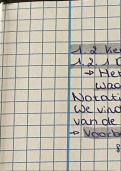 1.2 Ke
1.2.1 D
→ He
waa
Notati
We vind
van de
→ Voorb